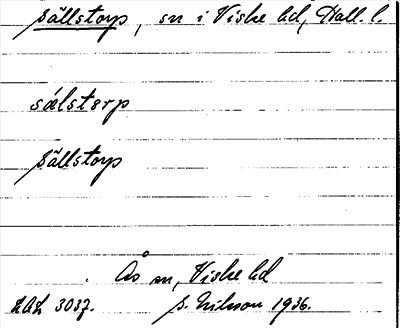 Sällstorp, sn i Viske hd, Hall. l.
sǽlstɵrp
Sällstorp
Ås sn, Viske hd
LAL 3037. S. Nilsson 1936.